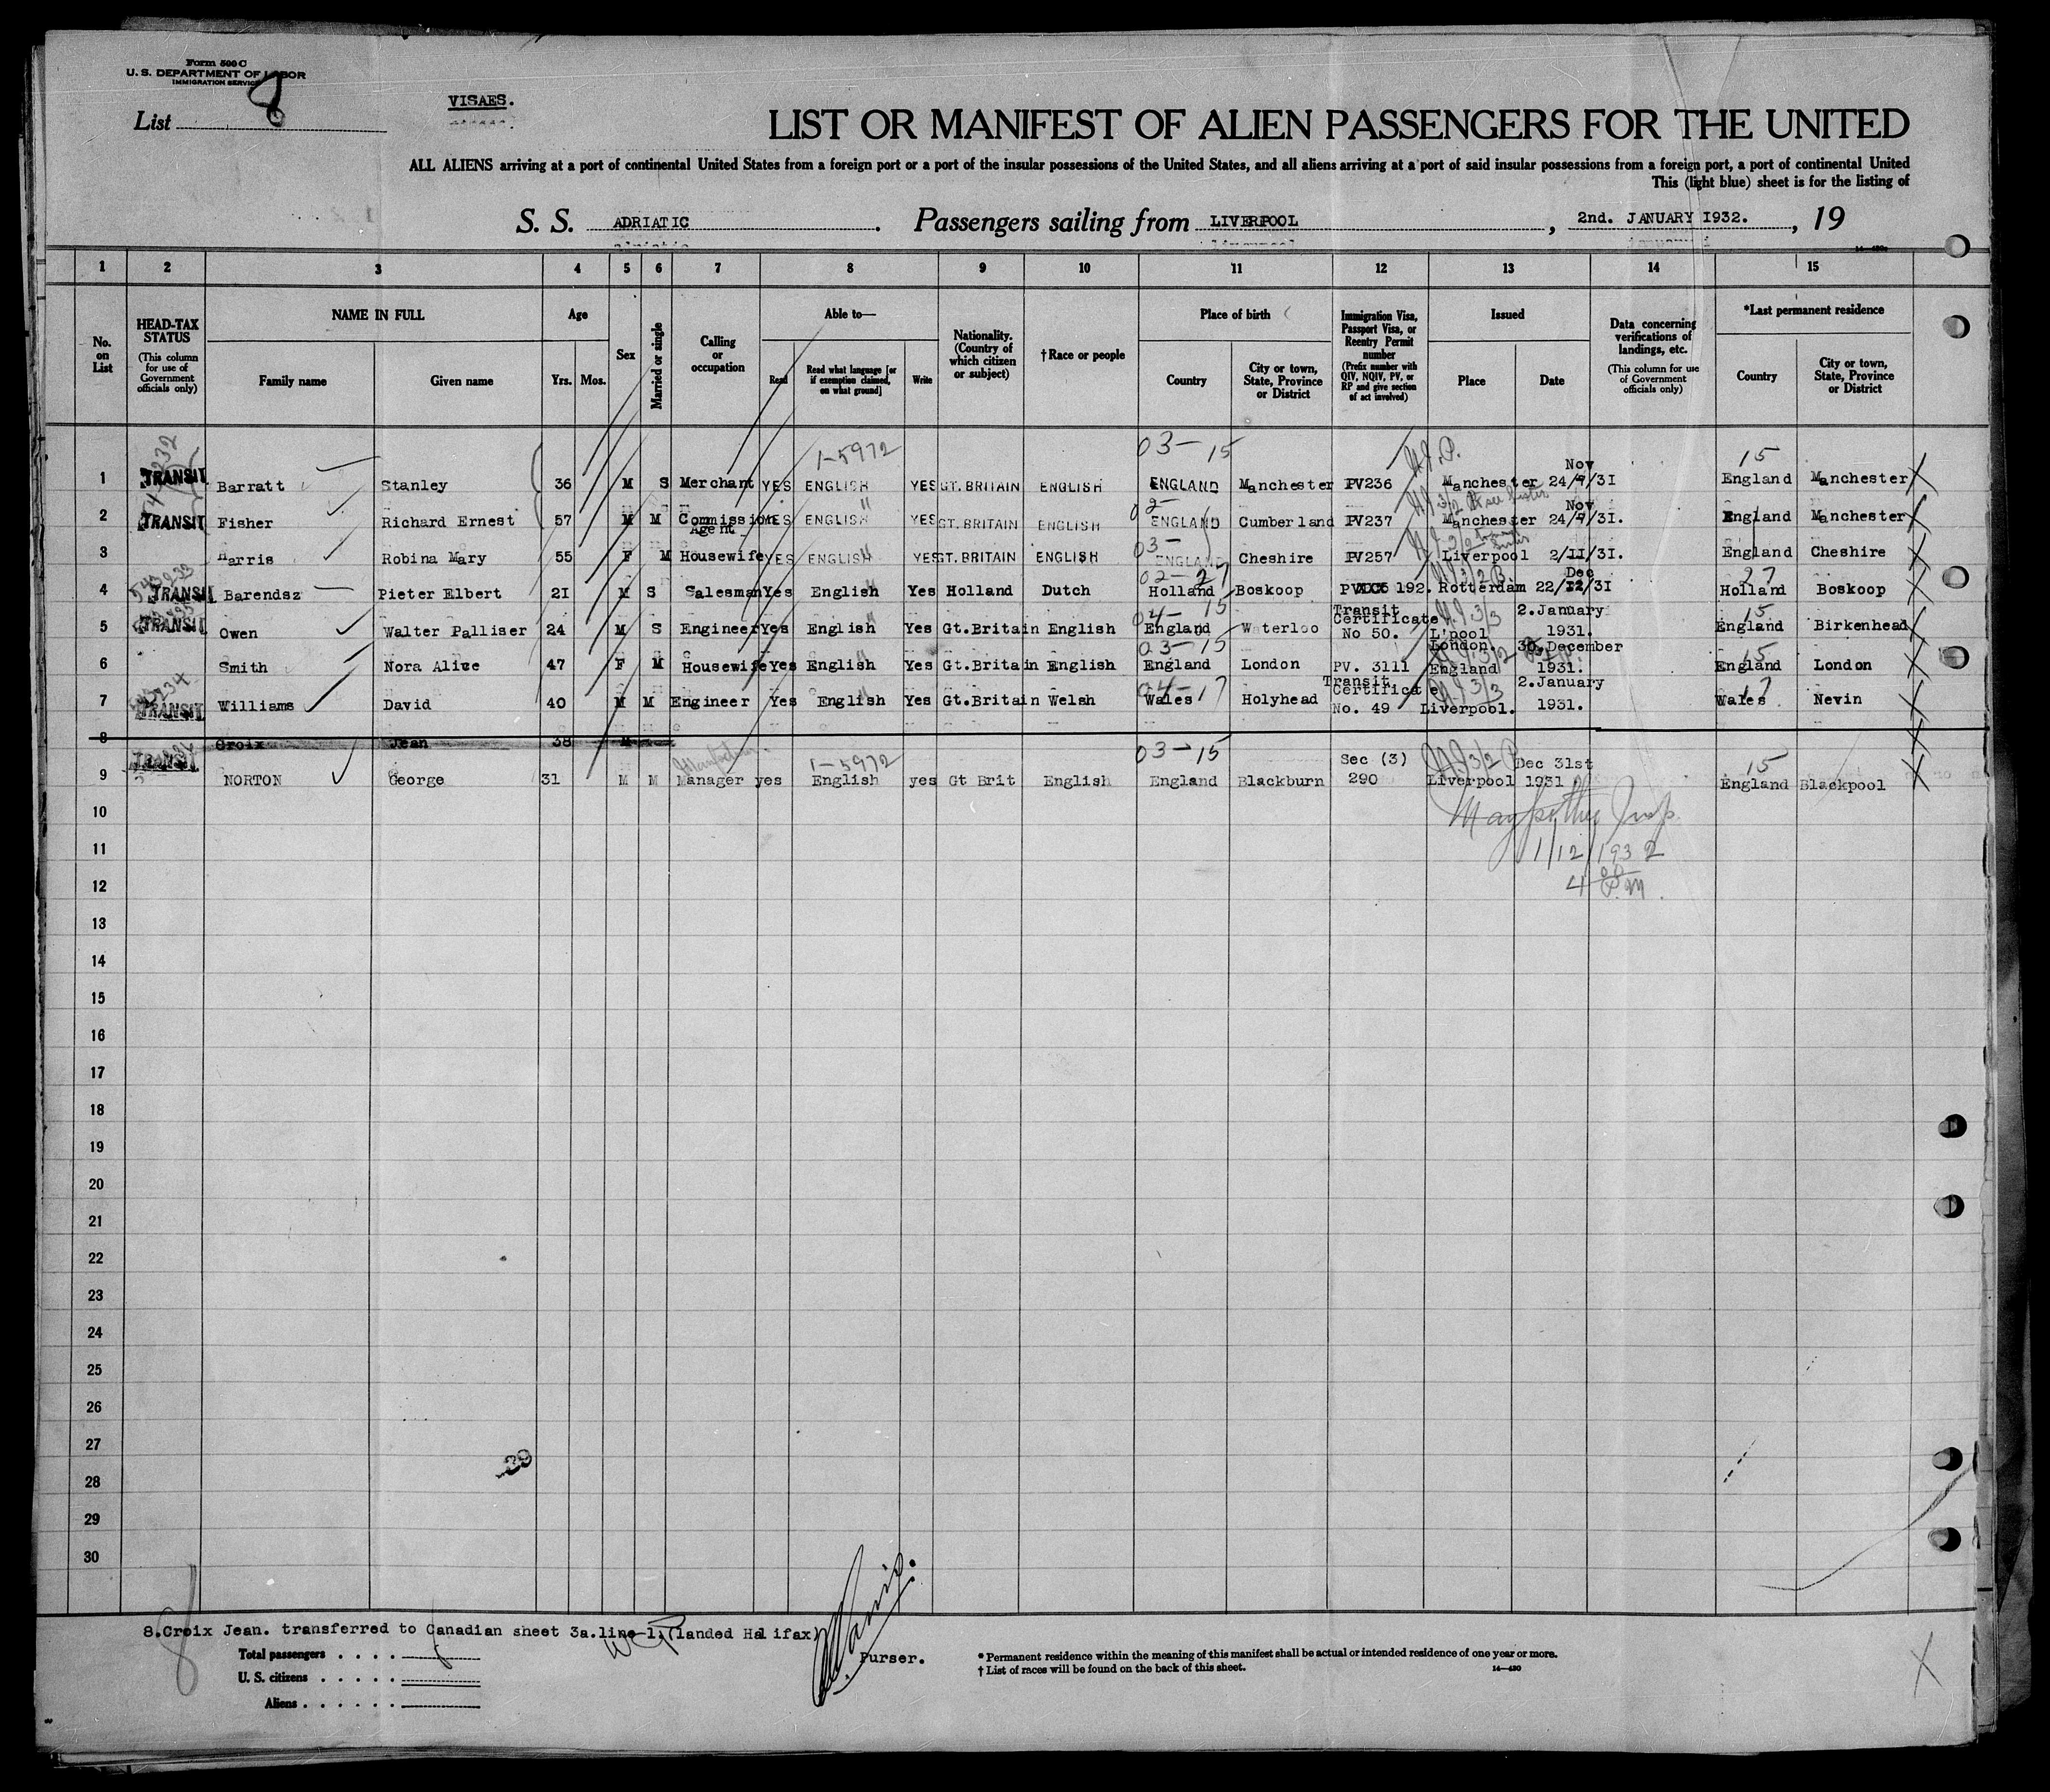 Form 500 C
U. S. DEPARTMENT OF LABOR
IMMIGRATION SERVICE
List 8
VISAES.
LIST OR MANIFEST OF ALIEN PASSENGERS FOR THE UNITED
ALL ALIENS arriving at a port of continental United States from a foreign port or a port of the insular possessions of the United States, and all aliens arriving at a port of said insular possessions from a foreign port, a port of continental United
This (light blue) sheet is for the listing of
S. S. ADRIATIC . Passengers sailing from LIVERPOOL , 2nd. JANUARY 1932. , 19
1 2 3 4 5 6 7 8 9 10 11 12 13 14 15
No. on List
HEAD-TAX STATUS
(This column for use of Government officials only)
NAME IN FULL
Family name Given name
Age
Yrs. Mos.
Sex
Married or single
Calling or occupation
Able to—
Read Read what language [or if exemption claimed, on what ground] Write
Nationality. (Country of which citizen or subject)
†Race or people
Place of birth
Country City or town, State, Province or District
Immigration Visa, Passport Visa, or Reentry Permit number
(Prefix number with QIV, NQIV, PV, or RP and give section of act involved)
Issued
Place Date
Data concerning verifications of landings, etc.
(This column for use of Government officials only)
*Last permanent residence
Country City or town, State, Province or District
1-5972 03-15 15
1 TRANSIT Barratt Stanley 36 M S Merchant YES ENGLISH YES GT. BRITAIN ENGLISH ENGLAND Manchester PV236 Manchester 24/ Nov /31 England Manchester X
2 TRANSIT Fisher Richard Ernest 57 M M Commission Agent YES ENGLISH YES GT. BRITAIN ENGLISH ENGLAND Cumberland PV237 Manchester 24/ Nov /31. England Manchester X
3 Harris Robina Mary 55 F M Housewife YES ENGLISH YES GT. BRITAIN ENGLISH ENGLAND Cheshire PV257 Liverpool 2/11/31. England Cheshire X
02-27 27
4 TRANSIT Barendsz Pieter Elbert 21 M S Salesman Yes English Yes Holland Dutch Holland Boskoop PV 192. Rotterdam 22/ Dec /31 Holland Boskoop X
04-15 15
5 TRANSIT Owen Walter Palliser 24 M S Engineer Yes English Yes Gt.Britain English England Waterloo Transit Certificate No 50. L'pool 2.January 1931. England Birkenhead X
03-15 15
6 Smith Nora Alice 47 F M Housewife Yes English Yes Gt.Britain English England London PV. 3111 London. England 30. December 1931. England London X
04-17 17
7 TRANSIT Williams David 40 M M Engineer Yes English Yes Gt.Britain Welsh Wales Holyhead Transit Certificate No. 49 Liverpool. 2.January 1931. Wales Nevin X
8 Croix Jean 38 M X
1-5972 03-15 15
9 TRANSIT NORTON George 31 M M Manager yes English yes Gt Brit English England Blackburn Sec (3) 290 Liverpool Dec 31st 1931 England Blackpool X
1/12/1932
4 00 P.M.
10
11
12
13
14
15
16
17
18
19
20
21
22
23
24
25
26
27
28
29
30
8.Croix Jean. transferred to Canadian sheet 3a.line 1.(landed Halifax)
Total passengers
U. S. citizens
Aliens
Purser.
* Permanent residence within the meaning of this manifest shall be actual or intended residence of one year or more.
† List of races will be found on the back of this sheet.
14—480